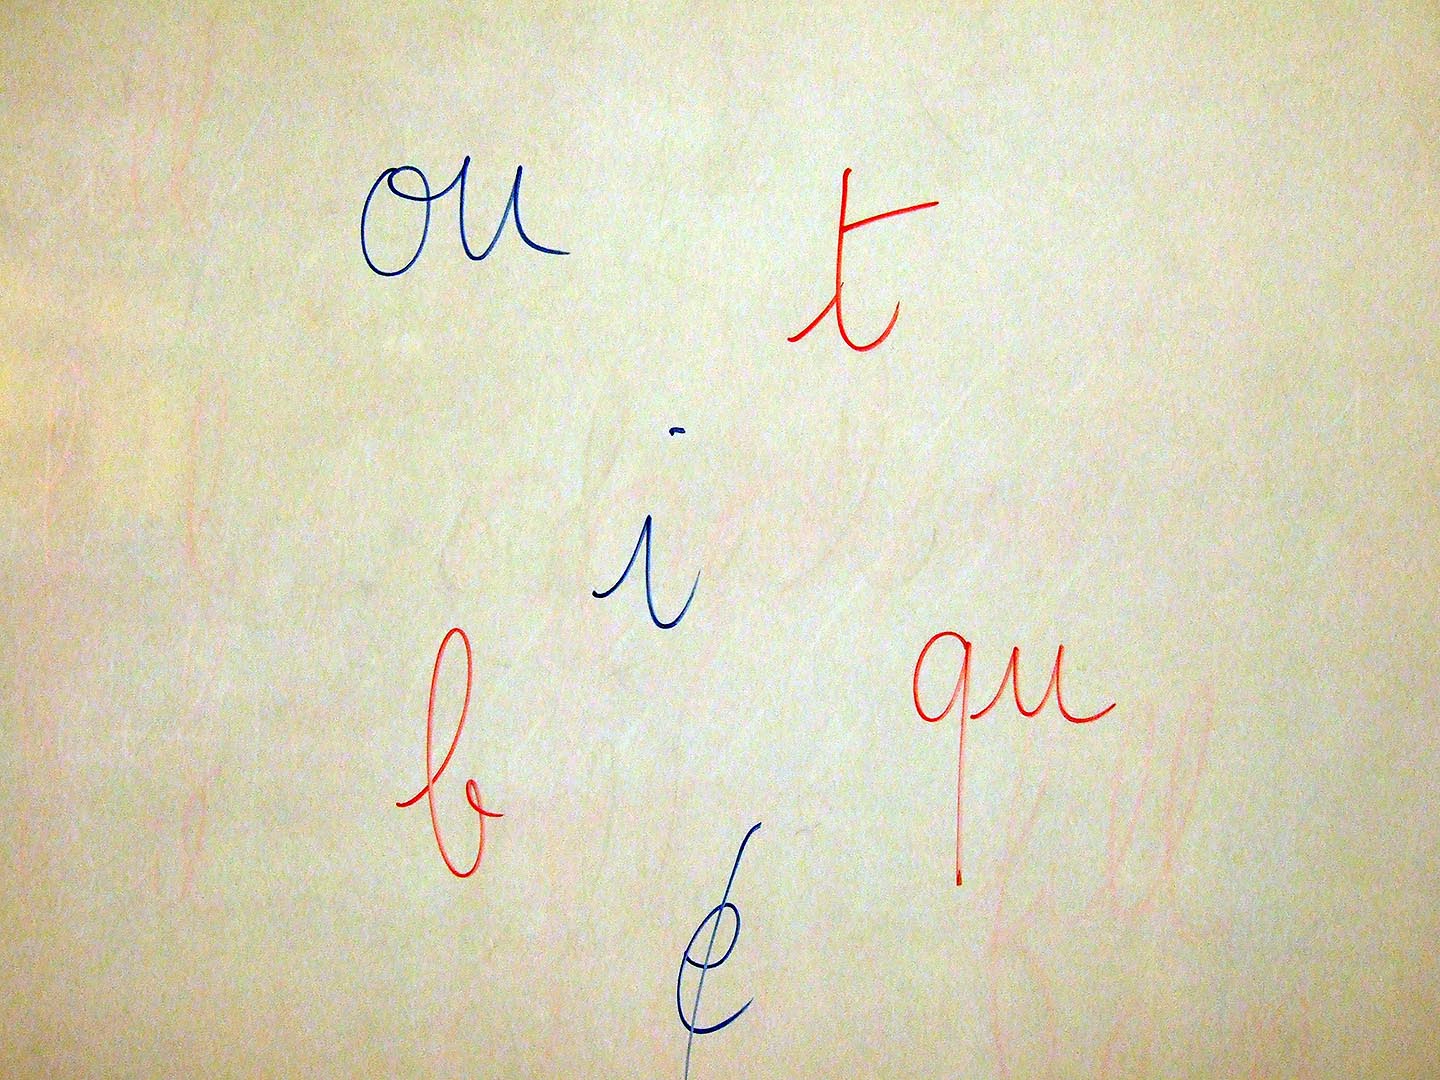 ou t
i
b qu
e